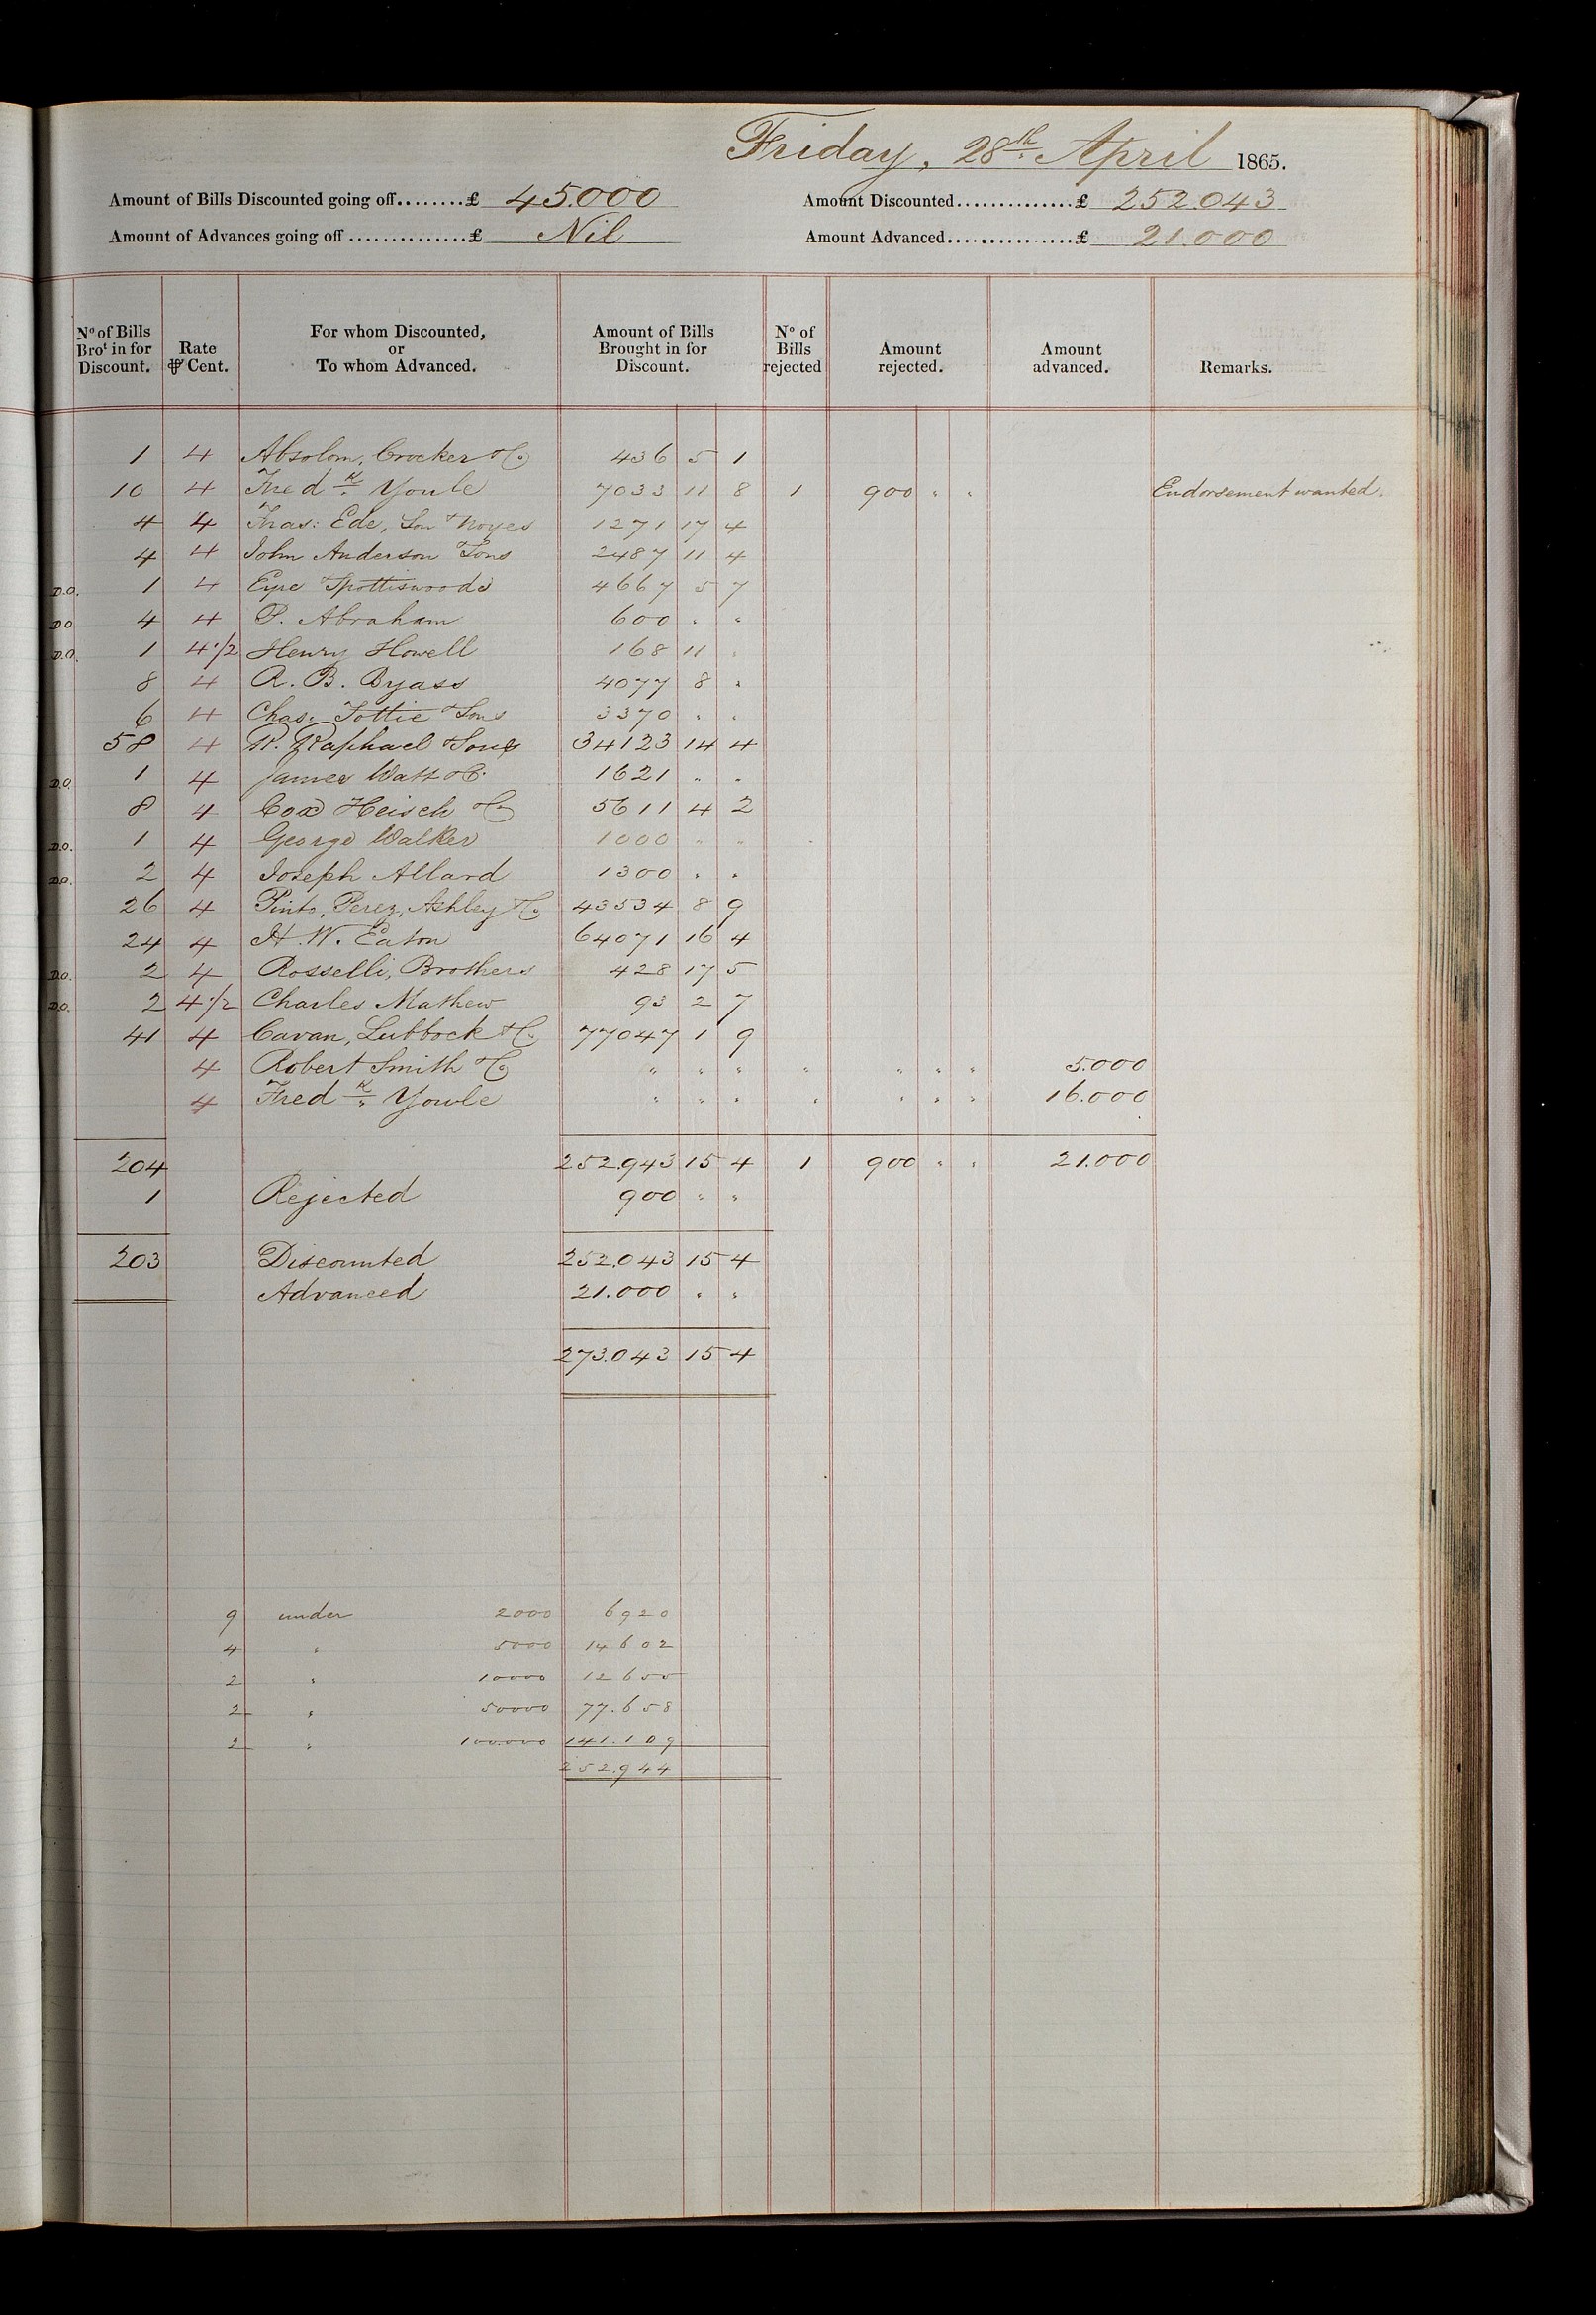 Friday, 28th April 1865.
Amount of Bills Discounted going off........£ 45.000 Amount Discounted..............£ 252.043
Amount of Advances going off..............£ Nil Amount Advanced................£ 21.000
No of Bills Brot in for Discount. Rate ⅌ Cent. For whom Discounted, or To whom Advanced. Amount of Bills Brought in for Discount. No of Bills rejected Amount rejected. Amount advanced. Remarks.
1 4 Absolom, Crocker & Co 436 5 1
10 4 Fredk Youle 7033 11 8 1 900 " " Endorsement wanted.
4 4 Thas: Ede, Son & Noyes 1271 17 4
4 4 John Anderson & Sons 2487 11 4
D.O. 1 4 Eyre & Spottiswoode 4667 5 7
D.O 4 4 P. Abraham 600 " "
D.O. 1 4 1/2 Henry Howell 168 11 "
8 4 R. B. Byass 4077 8 "
6 4 Chas: Tottie & Sons 3370 " "
58 4 R. Raphael & Sons 34123 14 4
D.O. 1 4 James Watt & Co. 1621 " "
8 4 Cox Heisch & Co 5611 4 2
D.O. 1 4 George Walker 1000 " "
D.O. 2 4 Joseph Allard 1300 " "
26 4 Pinto, Perez, Ashley & Co 43534 8 9
24 4 H. W. Eaton 64071 16 4
D.O. 2 4 Rosselli, Brothers 428 17 5
D.O. 2 4 1/2 Charles Mathew 93 2 7
41 4 Cavan, Lubbock & Co 77047 1 9
4 Robert Smith & Co " " " " " " " 5.000
4 Fredk Youle " " " " " " " 16.000
204 252.943 15 4 1 900 " " 21.000
1 Rejected 900 " "
203 Discounted 252.043 15 4
Advanced 21.000 " "
273.043 15 4
9 under 2000 6920
4 " 5000 14602
2 " 10000 12655
2 " 50000 77.658
2 " 100.000 141.109
252.944